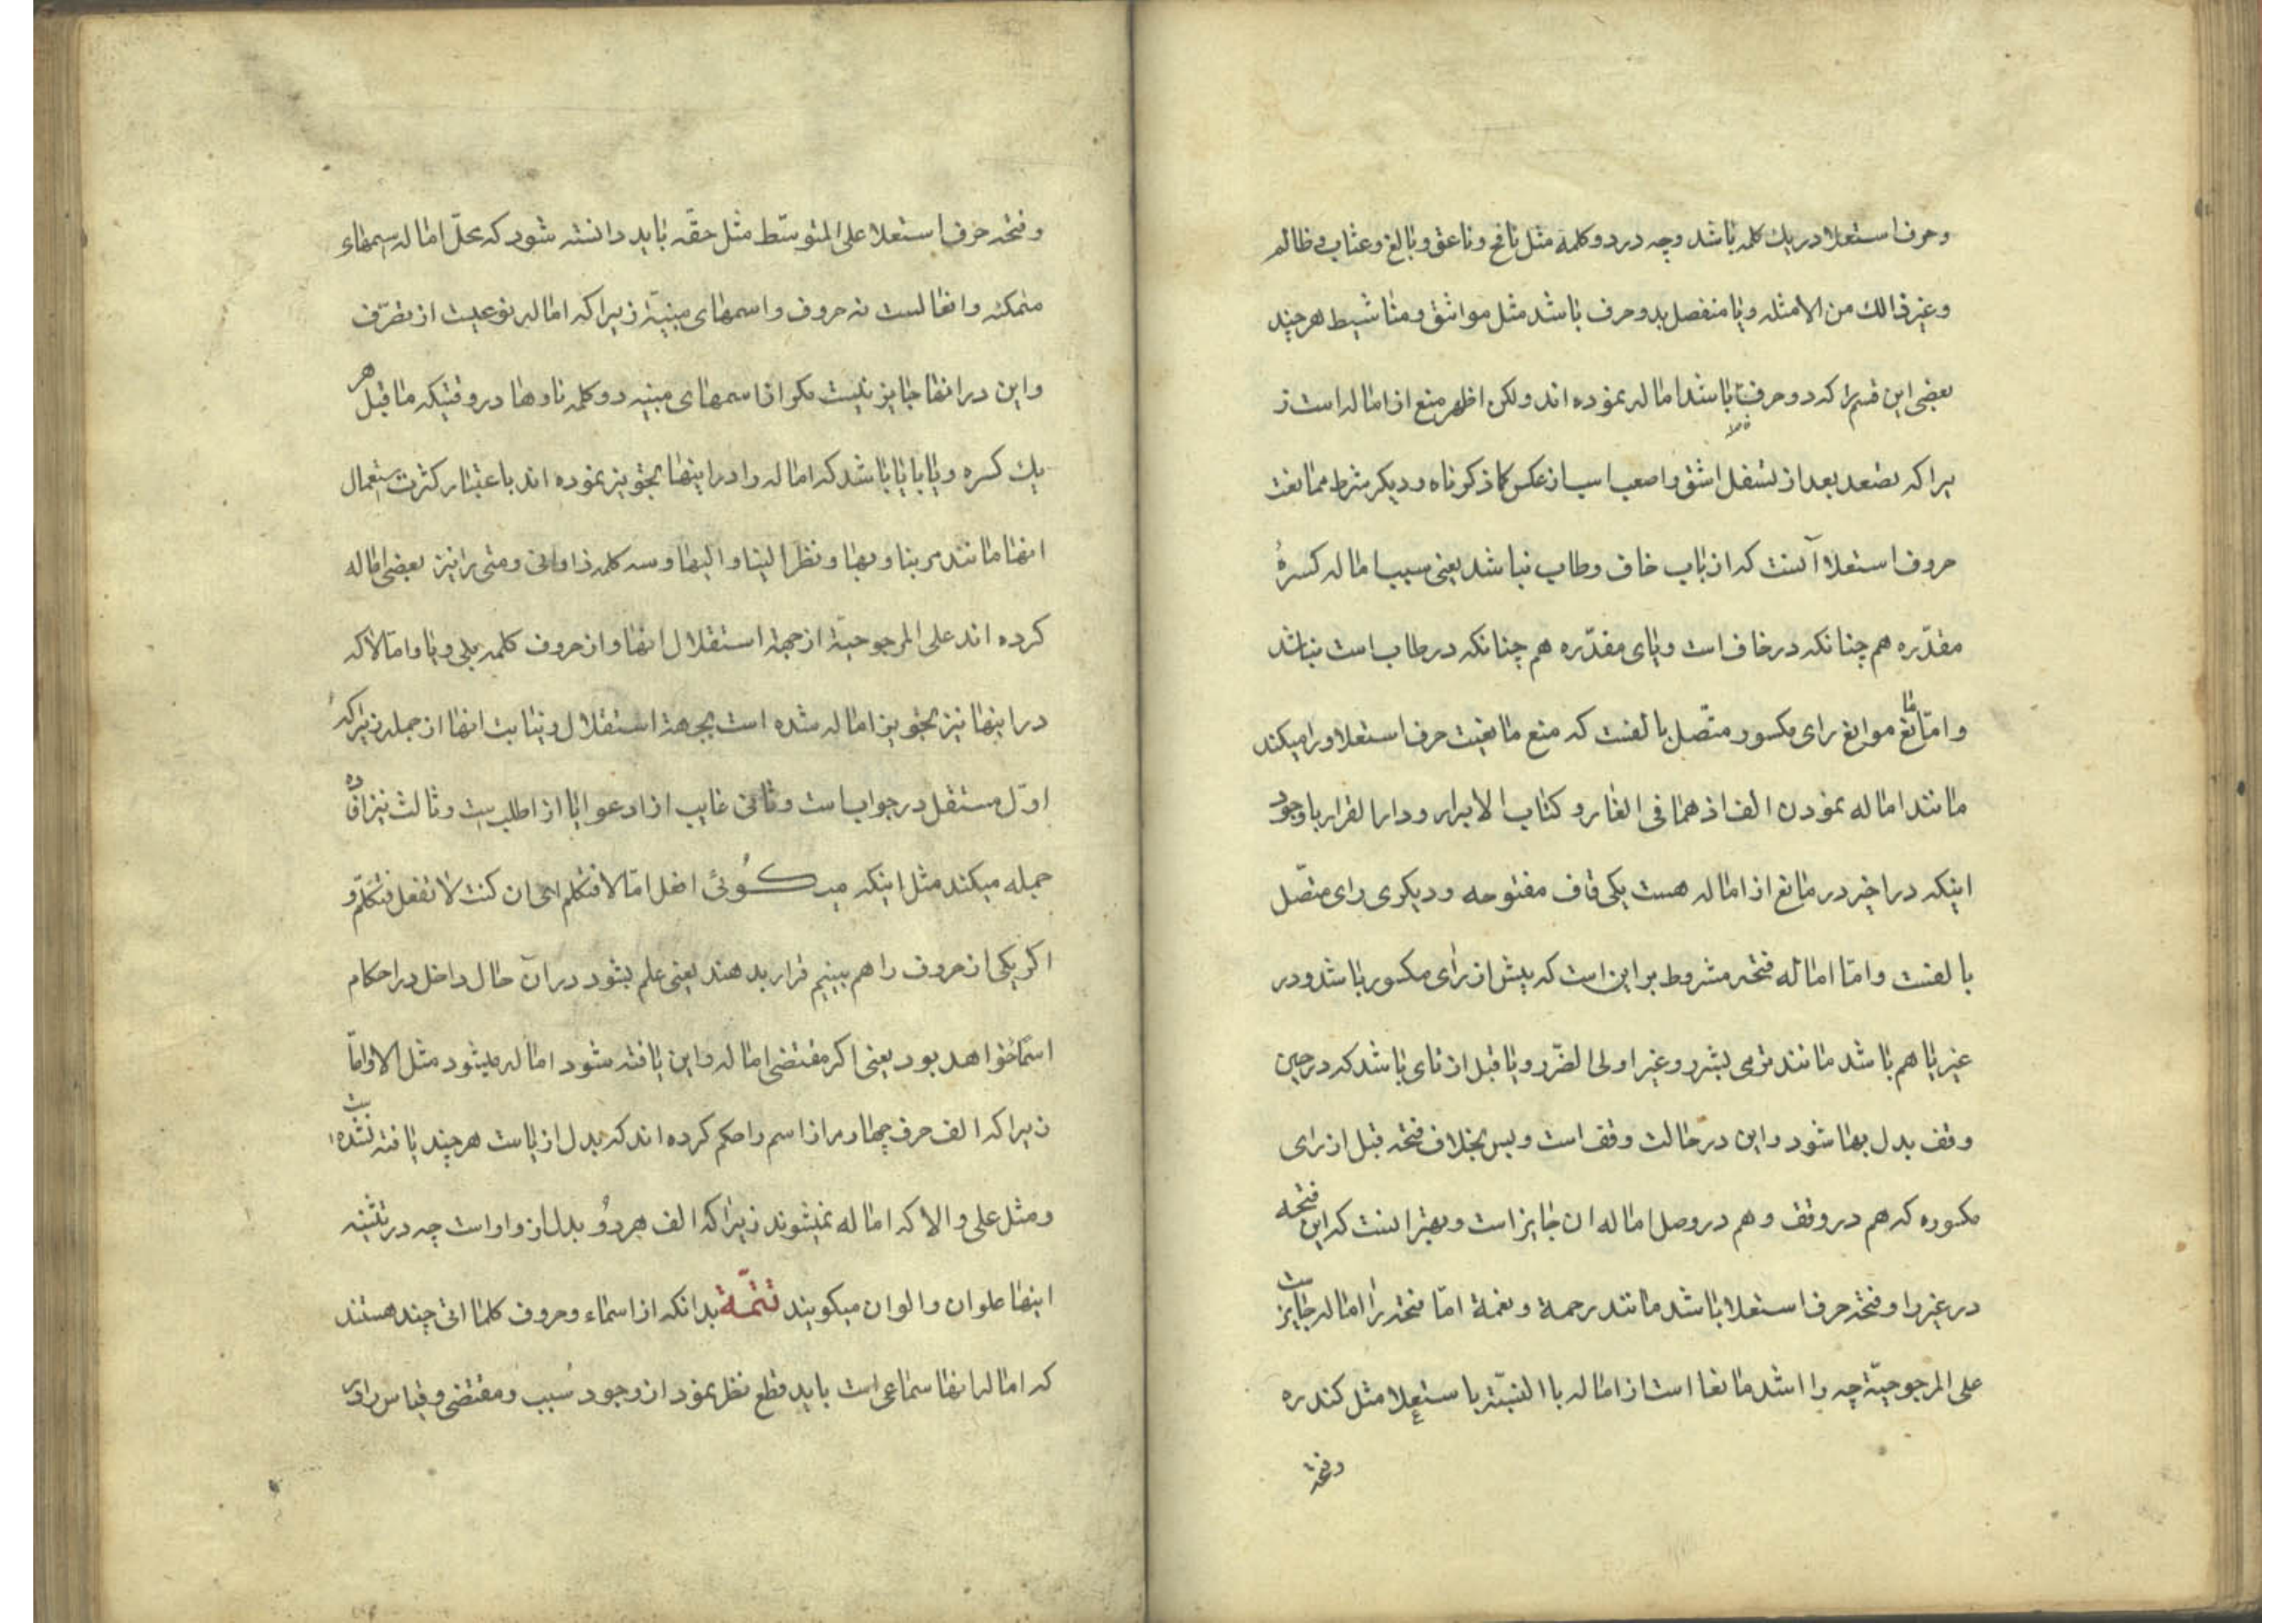 و حرف استعلا در یك كلمه باشد و چه در دو كلمه مثل نافخ و ناعق و بالغ و عثاب و ظالم
و غیر ذالك من الامثله و یا منفصل بدو حرف باشد مثل مواشق و مناشیط هر چند
بعضی این قسم را كه دو حرف باشد اماله نموده اند و لكن اظهر منع از اماله است ز
یرا كه تصعد بعد از تسفل اشق و اصعب است از عكس كما ذكرناه و دیكر شرط ممانعت
حروف استعلا آنست كه از باب خاف و طاب نباشد یعنی سبب اماله كسرهٔ
مقدّره هم چنانكه در خاف است و یای مقدّره هم چنانكه در طاب است نباشد
و امّا مانع موانع رای مكسور متّصل بالفست كه منع مانعیت حرف استعلا و را میكند
مانند اماله نمودن الف اذ هما فی الغار و كتاب الابرار و دار القرار با وجود
اینكه در اخیر در مانع از اماله هست یكی قاف مفتوحه و دیكری رای متصّل
بالفست و امّا اماله فتحه مشروط بر این است كه پیش از رای مكسور باشد و در
غیر یا هم باشد مانند ترمی بشرر و غیر اولی الضّرر و یا قبل از تای باشد كه در حین
وقف بدل بها شود و این در حالت وقف است و بس بخلاف فتحه قبل از رای
مكسوره كه هم در وقف و هم در وصل اماله ان جایز است و بهتر انست كه این فتحه
در غیر را و فتحه حرف استعلا باشد مانند رحمة و نعمة امّا فتحه را اماله جایز است
علی المرجوحیّة چه را اشد مانعا است از اماله با النسبّة باستعلا مثل كندره
و فتحه
و فتحه حرف استعلا علی المتوسّط مثل حقّه باید دانسته شود كه محلّ اماله اسمهاء
متمكنه و افعالست نه حروف و اسمهای مبنیّه زیرا كه اماله نوعیست از تصرّف
و این در انها جایز نیست مكر از اسمهای مبنیه دو كلمه نا و ها در وقتیكه ما قبل هر
یك كسره و یا یا باشد كه اماله را در اینها تجویز نموده اند باعتبار كثرت استعمال
انها مانند مر بنا و بها و نظر الینا و الیها و سه كلمه ذا و انی و متی را نیز بعضی اماله
كرده اند علی المرجوحیّة از جهة استقلال انها و از حروف كلمه بلی و یا و امّا لا كه
در اینها نیز تجویز اماله شده است بجهة استقلال و نیابت انها از جمله زیرا كه
اوّل مستقل در جواب است و ثانی نایب از ادعو ایا از اطلب است و ثالث نیز افاده
جمله میكند مثل اینكه میكوئی افعل امّا لا فتكلم ای ان كنت لا تفعل فتكلّم و
اكر یكی از حروف را هم ببینیم قرار بدهند یعنی علم بشود در آن حال داخل در احكام
اسماء خواهد بود یعنی اكر مقتضی اماله و این یافته شود اماله میشود مثل الا و امّا
زیرا كه الف حرف چهارم از اسم را حكم كرده اند كه بدل از یا است هر چند یافته نشده است
و مثل علی و الا كه اماله نمیشوند زیرا كه الف هر دو بدل از واو است چه در تثنیه
اینها علوان و الوان میكویند تتمّة بدانكه از اسماء و حروف كلماتی چند هستند
كه اماله انها سماعی است باید قطع نظر نمود از وجود سبب و مقتضی و قیاس را در